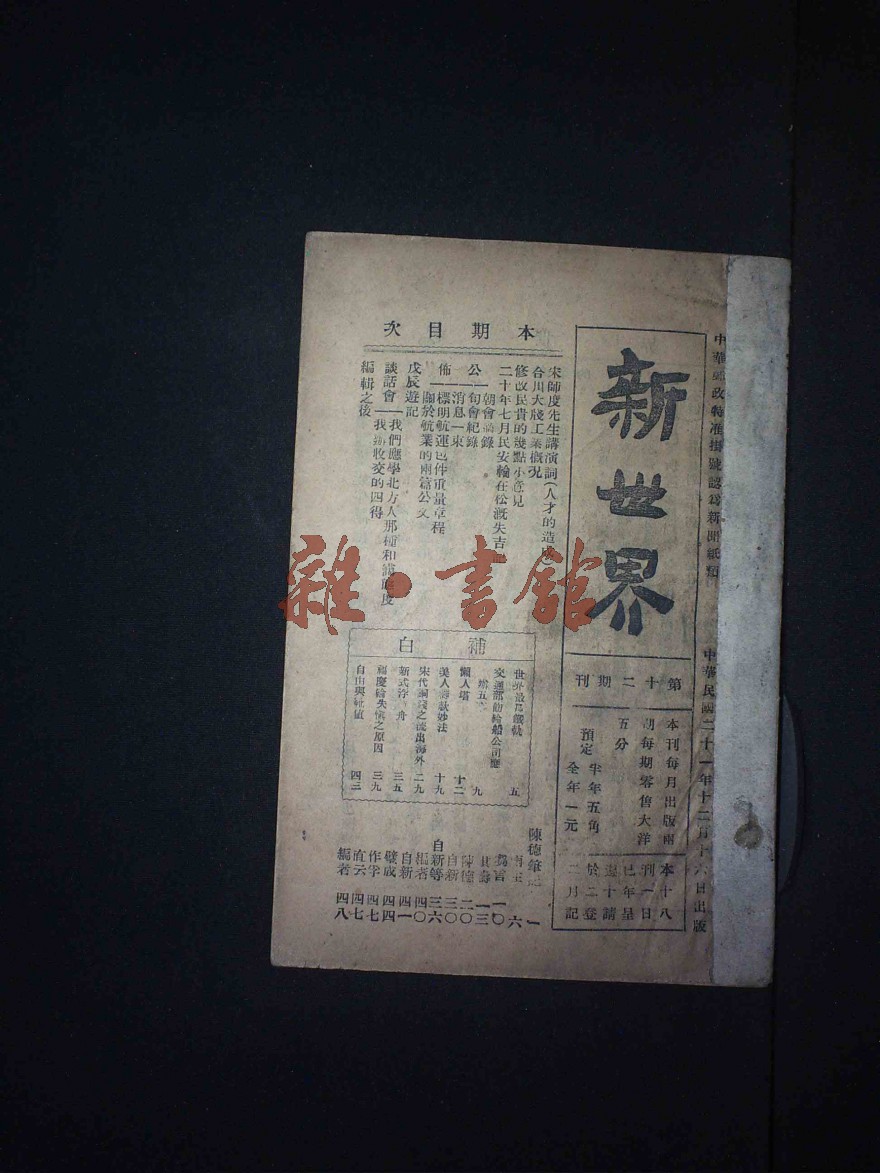 中華郵政特准掛號認爲新聞紙類
中華民國二十一年十二月十六日出版
新世界
第十二期刊
本刊每月出版兩
期每期零售大洋
五分
預定 半年五角
全年一元
本刊已遞於二月
十一年十二月
八日呈請登記
本期目次
宋師度先生講演詞(人才的造
陳德筆
一
合川大廠工業概況
六
修改民貴的幾點小意見
一〇
二十年七月民安輪在松溉失吉
一三
公
朝會
錄
二〇
旬會紀錄
自新
三〇
佈
消息一束
自新等
三六
標明航運包件重量章程
編者
四〇
關於航業的兩篇公文
自新
四一
戊辰遊記
成
四四
談話會
我們應學北方人那種和藹態度
作孚
四七
我 收交的四得
直云
四七
編輯之後
編者
四八
補白
世界最
五
交通部 輪船公司應
辦五
九
懶人塔
十二
美人 妙法
十九
宋代銅錢之流出海外
二九
新式浮舟
三五
福慶輪失慎之原因
三九
自由與紙值
四三
雜·書館